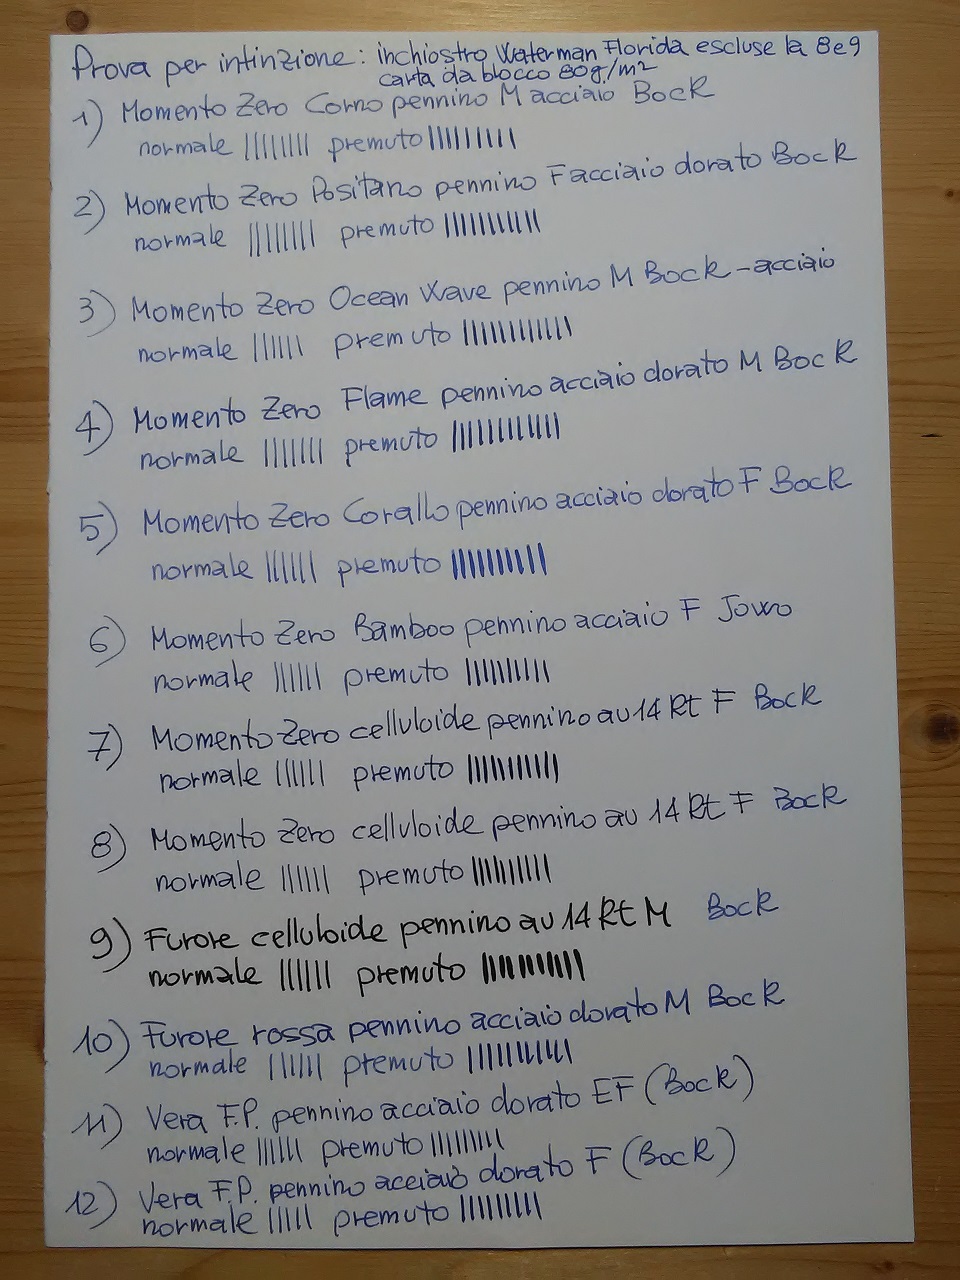 Prova per intinzione: inchiostro Waterman Florida escluse la 8 e 9
carta da blocco 80g/m²
1) Momento Zero Corno pennino M acciaio Bock
normale |||||||| premuto ||||||||||
2) Momento Zero Positano pennino F acciaio dorato Bock
normale |||||||| premuto |||||||||||
3) Momento Zero Ocean Wave pennino M Bock - acciaio
normale |||||| premuto ||||||||||||
4) Momento Zero Flame pennino acciaio dorato M Bock
normale ||||||| premuto ||||||||||||
5) Momento Zero Corallo pennino acciaio dorato F Bock
normale |||||| premuto ||||||||||
6) Momento Zero Bamboo pennino acciaio F Jowo
normale |||||| premuto ||||||||||
7) Momento Zero celluloide pennino au 14 Kt F Bock
normale |||||| premuto |||||||||||
8) Momento Zero celluloide pennino au 14 Kt F Bock
normale |||||| premuto ||||||||||
9) Furore celluloide pennino au 14 Kt M Bock
normale |||||| premuto ||||||||||
10) Furore rossa pennino acciaio dorato M Bock
normale |||||| premuto |||||||||||
11) Vera F.P. pennino acciaio dorato EF (Bock)
normale |||||| premuto |||||||||
12) Vera F.P. pennino acciaio dorato F (Bock)
normale ||||| premuto ||||||||||